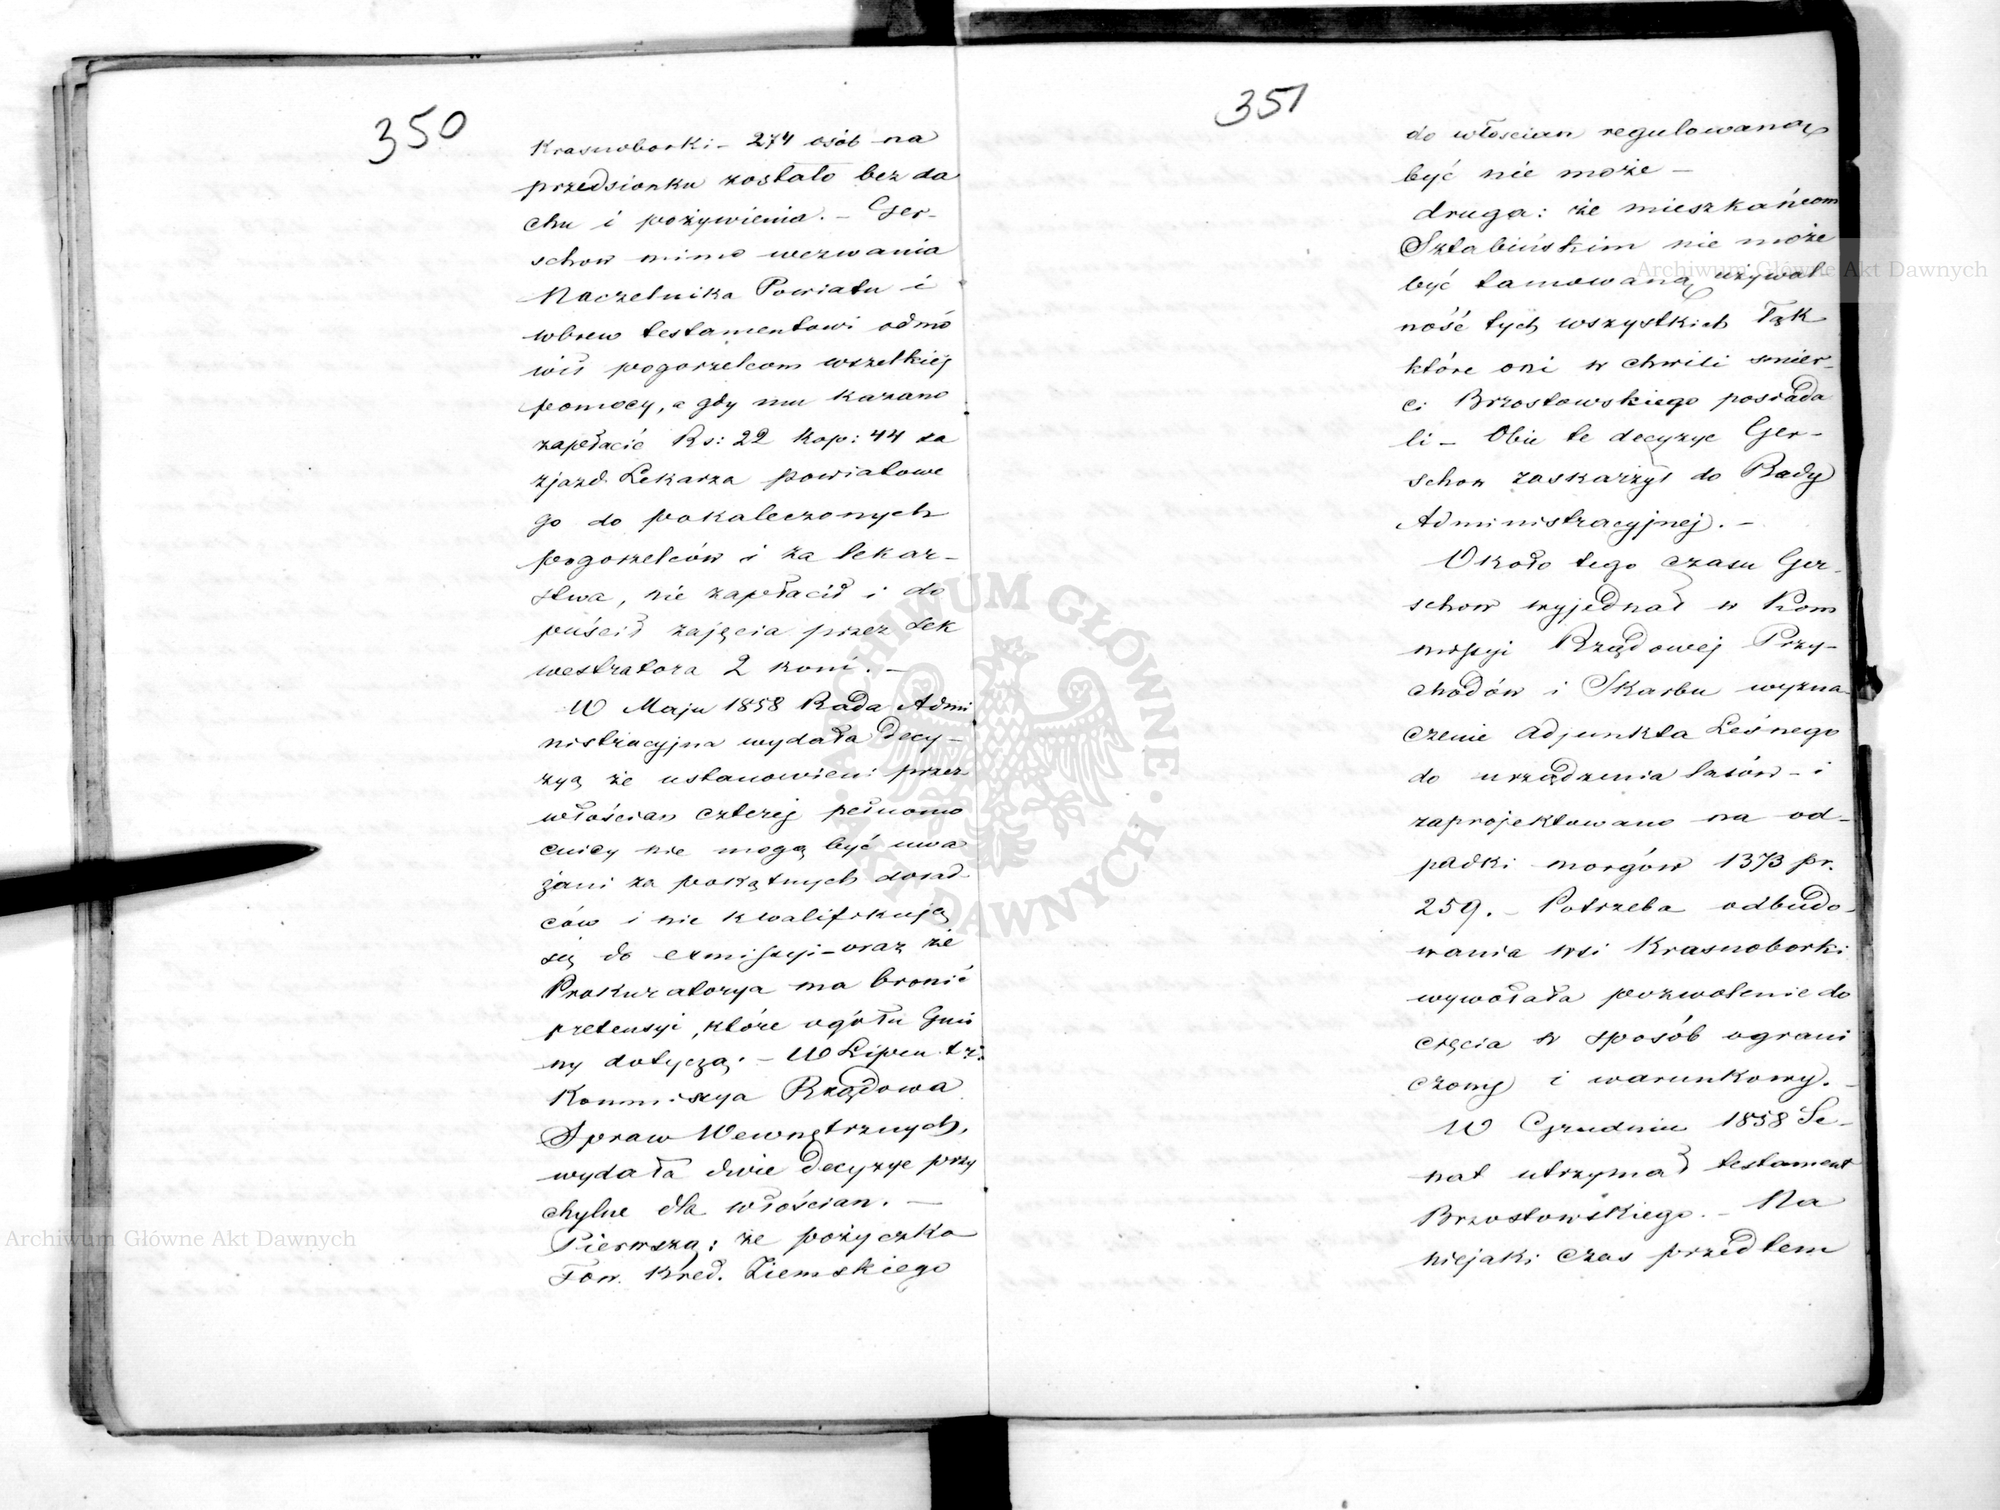 350
Krasnoborki – 274 osób na
przedsionku zostało bez da
chu i pożywienia. – Ger-
schow mimo wezwania
Naczelnika Powiatu i
wbrew testamentowi odmó
wił pogorzelcom wszelkiej
pomocy, a gdy mu kazano
zapłacić Rs: 22 kop: 44 za
zjazd Lekarza powiatowe
go do pokaleczonych
pogorzelców i za lekar-
stwa, nie zapłacił i do
puścił zajęcia przez Sek
westratora 2 koni. –
W Maju 1858 Rada Admi
nistracyjna wydała decy-
zyą że ustanowieni przez
włościan czterej pełnomo
cnicy nie mogą być uwa
żani za pokątnych dorad-
ców i nie kwalifikują
się do exmissyi – oraz że
Prokuratorya ma bronić
pretensyi, które ogółu Gmi
ny dotyczą. – W Lipcu t.r.
Kommissya Rządowa
Spraw Wewnętrznych,
wydała dwie decyzye przy
chylne dla włościan. –
Pierwszą: że pożyczka
Tow. Kred. Ziemskiego
351
do włościan regulowaną
być nie może –
druga: że mieszkańcom
Sztabińskim nie może
być tamowaną używal
ność tych wszystkich łąk
które oni w chwili śmier-
ci Brzostowskiego posiada
li – Obie te decyzye Ger-
schow zaskarżył do Rady
Administracyjnej. –
Około tego czasu Ger-
schow wyjednał w Kom
missyi Rządowej Przy-
chodów i Skarbu wyzna-
czenie Adjunkta Leśnego
do urządzenia lasów – i
zaprojektowano na od-
padki morgów 1373 pr.
259. – Potrzeba odbudo-
wania wsi Krasnoborki
wywołała pozwolenie do
cięcia w sposób ograni
czony i warunkowy. –
W Grudniu 1858 Se-
nat utrzymał testament
Brzostowskiego. – Na
niejaki czas przedtem
ARCHIWUM GŁÓWNE AKT DAWNYCH
Archiwum Główne Akt Dawnych
Archiwum Główne Akt Dawnych